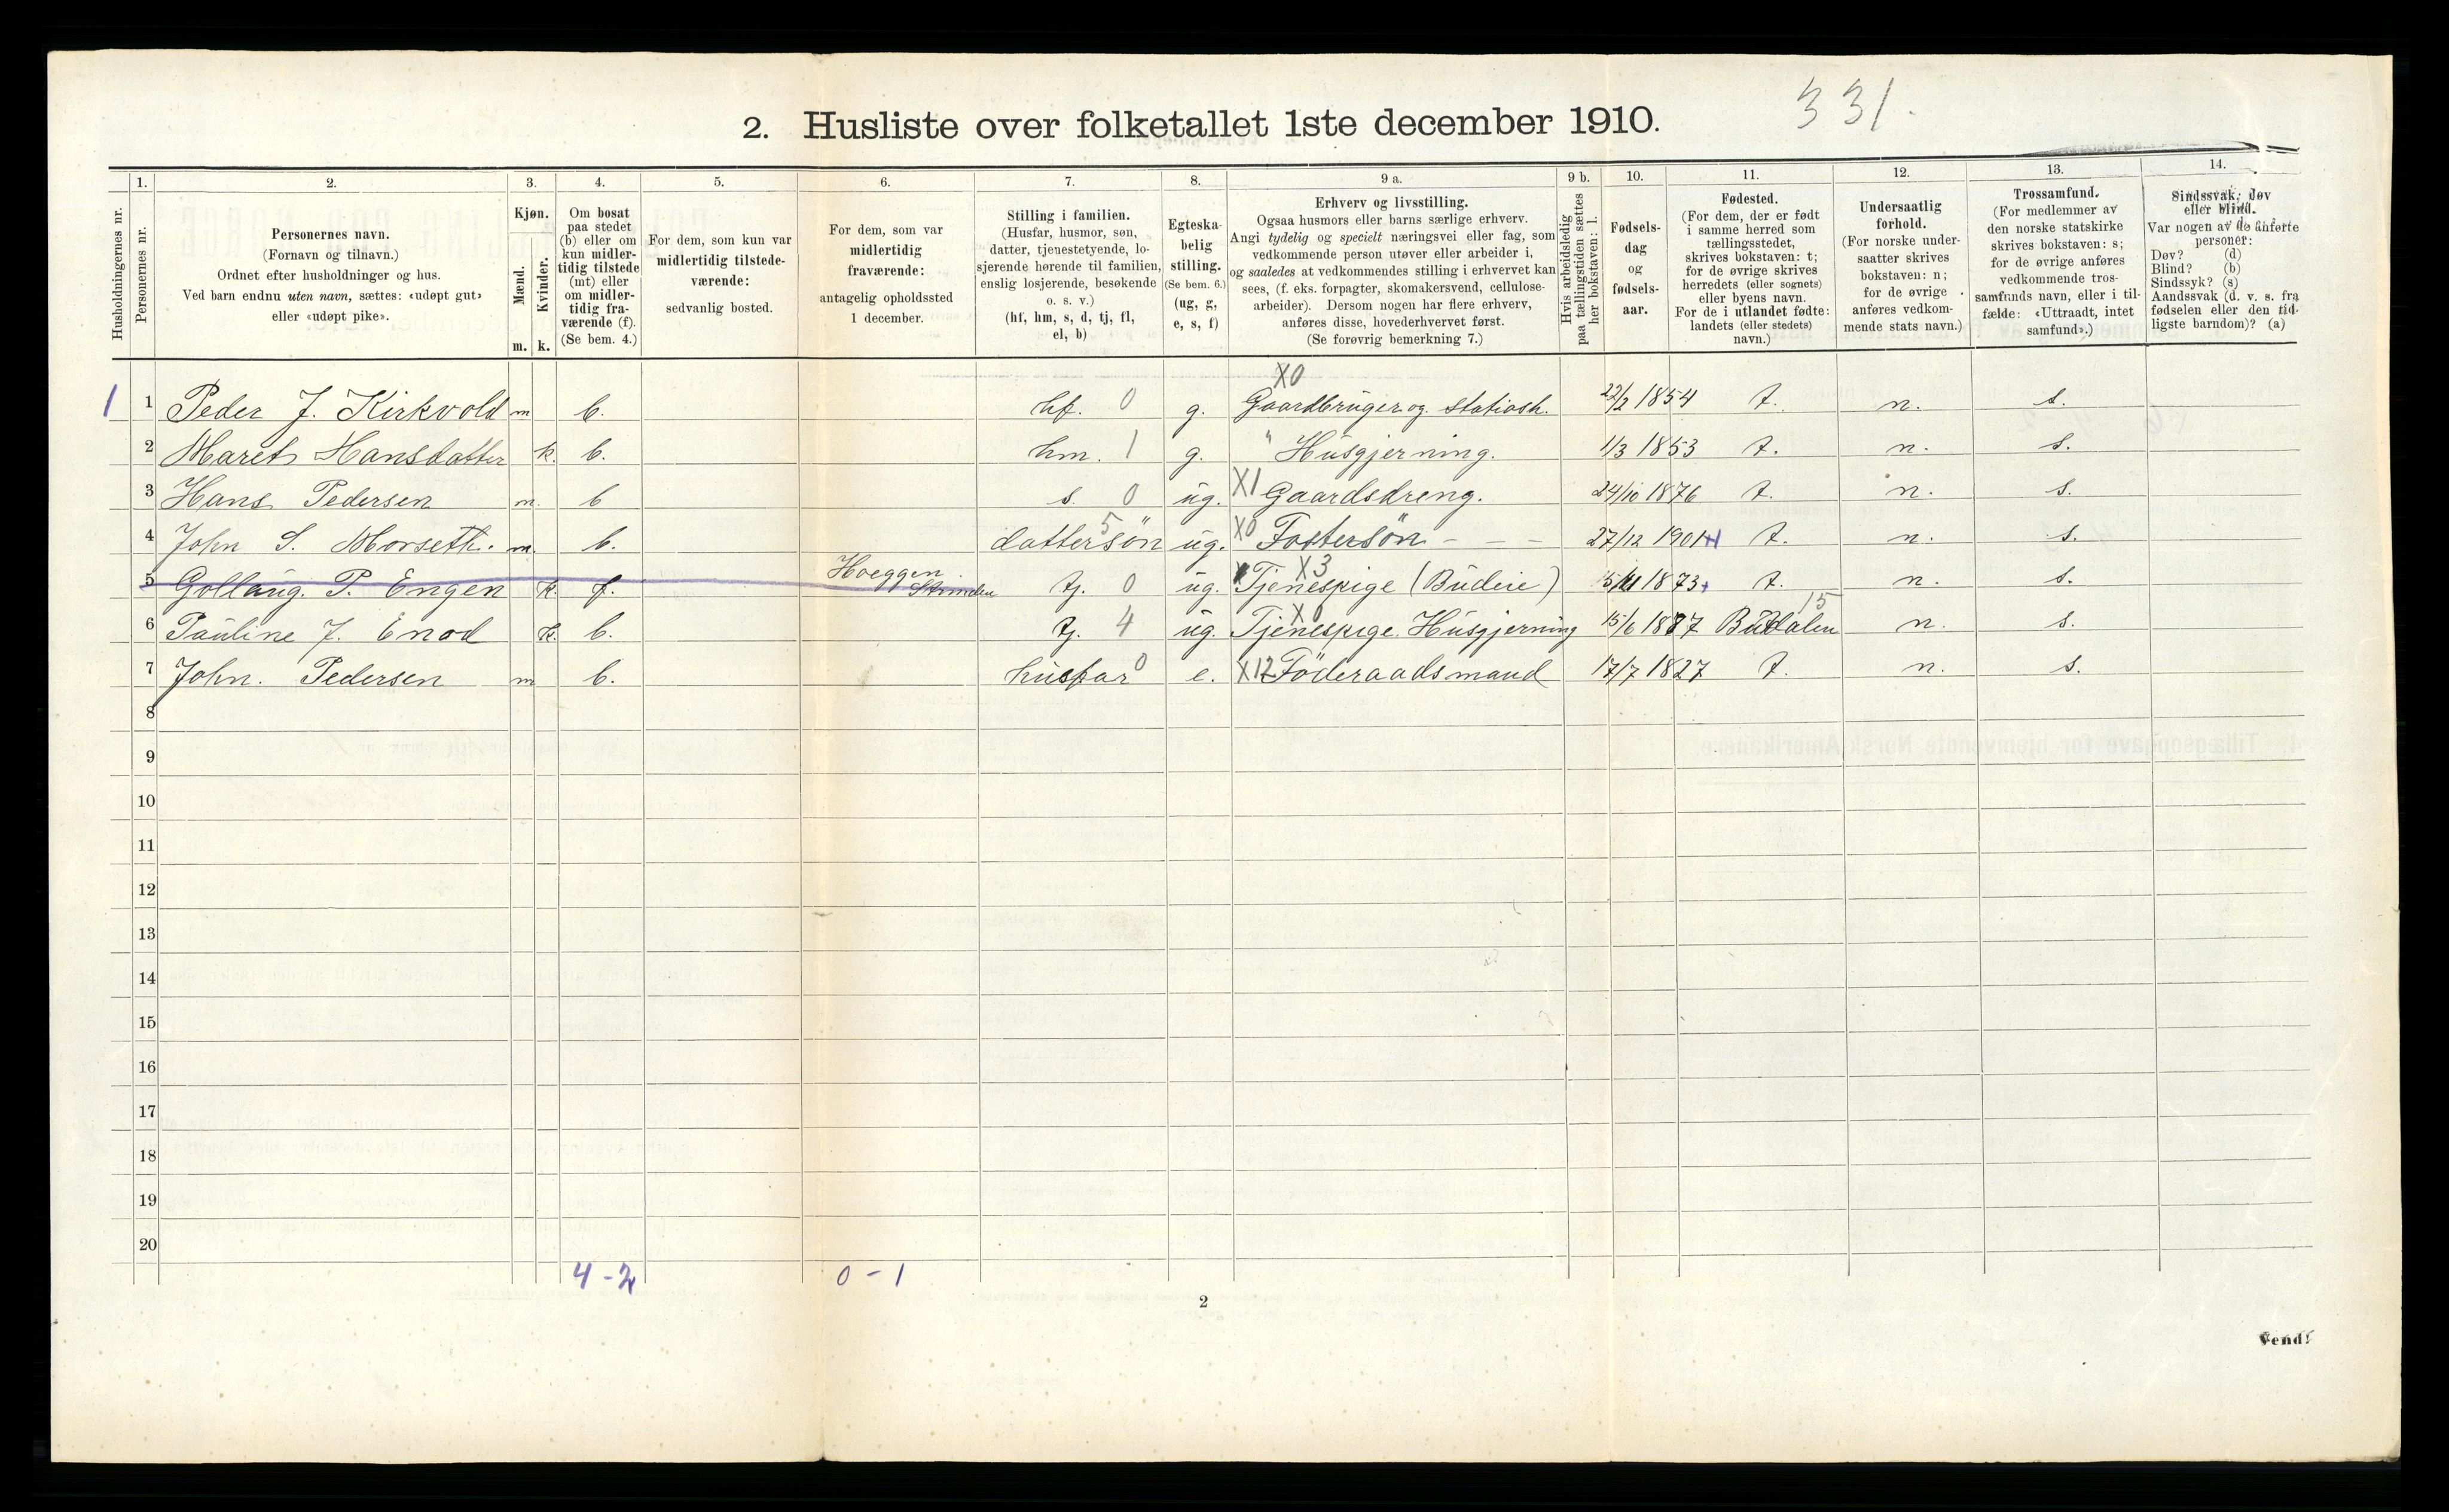 331.
2. Husliste over folketallet 1ste december 1910.
1. 2. 3. 4. 5. 6. 7. 8. 9 a. 9 b. 10. 11. 12. 13. 14.
Husholdningernes nr.
Personernes nr.
Personernes navn.
(Fornavn og tilnavn.)
Ordnet efter husholdninger og hus.
Ved barn endnu uten navn, sættes: «udøpt gut»
eller «udøpt pike».
Kjøn.
Mænd.
Kvinder.
m. k.
Om bosat
paa stedet
(b) eller om
kun midler-
tidig tilstede
(mt) eller
om midler-
tidig fra-
værende (f).
(Se bem. 4.)
For dem, som kun var
midlertidig tilstede-
værende:
sedvanlig bosted.
For dem, som var
midlertidig
fraværende:
antagelig opholdssted
1 december.
Stilling i familien.
(Husfar, husmor, søn,
datter, tjenestetyende, lo-
sjerende hørende til familien,
enslig losjerende, besøkende
o. s. v.)
(hf, hm, s, d, tj, fl,
el, b)
Egteska-
belig
stilling.
(Se bem. 6.)
(ug, g,
e, s, f)
Erhverv og livsstilling.
Ogsaa husmors eller barns særlige erhverv.
Angi tydelig og specielt næringsvei eller fag, som
vedkommende person utøver eller arbeider i,
og saaledes at vedkommendes stilling i erhvervet kan
sees, (f. eks. forpagter, skomakersvend, cellulose-
arbeider). Dersom nogen har flere erhverv,
anføres disse, hovederhvervet først.
(Se forøvrig bemerkning 7.)
Hvis arbeidsledig
paa tællingstiden sættes
her bokstaven: l.
Fødsels-
dag
og
fødsels-
aar.
Fødested.
(For dem, der er født
i samme herred som
tællingsstedet,
skrives bokstaven: t;
for de øvrige skrives
herredets (eller sognets)
eller byens navn.
For de i utlandet fødte:
landets (eller stedets)
navn.)
Undersaatlig
forhold.
(For norske under-
saatter skrives
bokstaven: n;
for de øvrige
anføres vedkom-
mende stats navn.)
Trossamfund.
(For medlemmer av
den norske statskirke
skrives bokstaven: s;
for de øvrige anføres
vedkommende tros-
samfunds navn, eller i til-
fælde: «Uttraadt, intet
samfund».)
Sindssvak, døv
eller blind.
Var nogen av de anførte
personer:
Døv? (d)
Blind? (b)
Sindssyk? (s)
Aandssvak (d. v. s. fra
fødselen eller den tid-
ligste barndom)? (a)
X0
1 1 Peder J. Kirkvold m b. hf. 0 g. Gaardbruger og Stationsh. 22/2 1854 t. n. s.
2 Maret Hansdatter k. b. hm. 1 g. " Husgjerning. 1/3 1853 t. n. s.
3 Hans Pedersen m. b s. 0 ug. X1 Gaardsdreng. 24/10 1876 t. n. s.
4 John S. Morseth. m. b. dattersön 5 ug. X0 Fostersön - - - 27/12 1901 t. n. s.
5 Gollaug. P. Engen k. f. Hoeggen tj. 0 ug. X3 Tjenespige (Budeie) 1873 t. n. s.
6 Pauline J. Enod k. b. tj. 4 ug. X0 Tjenespige. Husgjerning 15/6 1887 Budalen 15 n. s.
7 John. Pedersen m b. husfar 0 e. X12 Föderaadsmand 17/7 1827 t. n. s.
8
9
10
11
12
13
14
15
16
17
18
19
20
4 - 2 0 - 1
2
Vend!